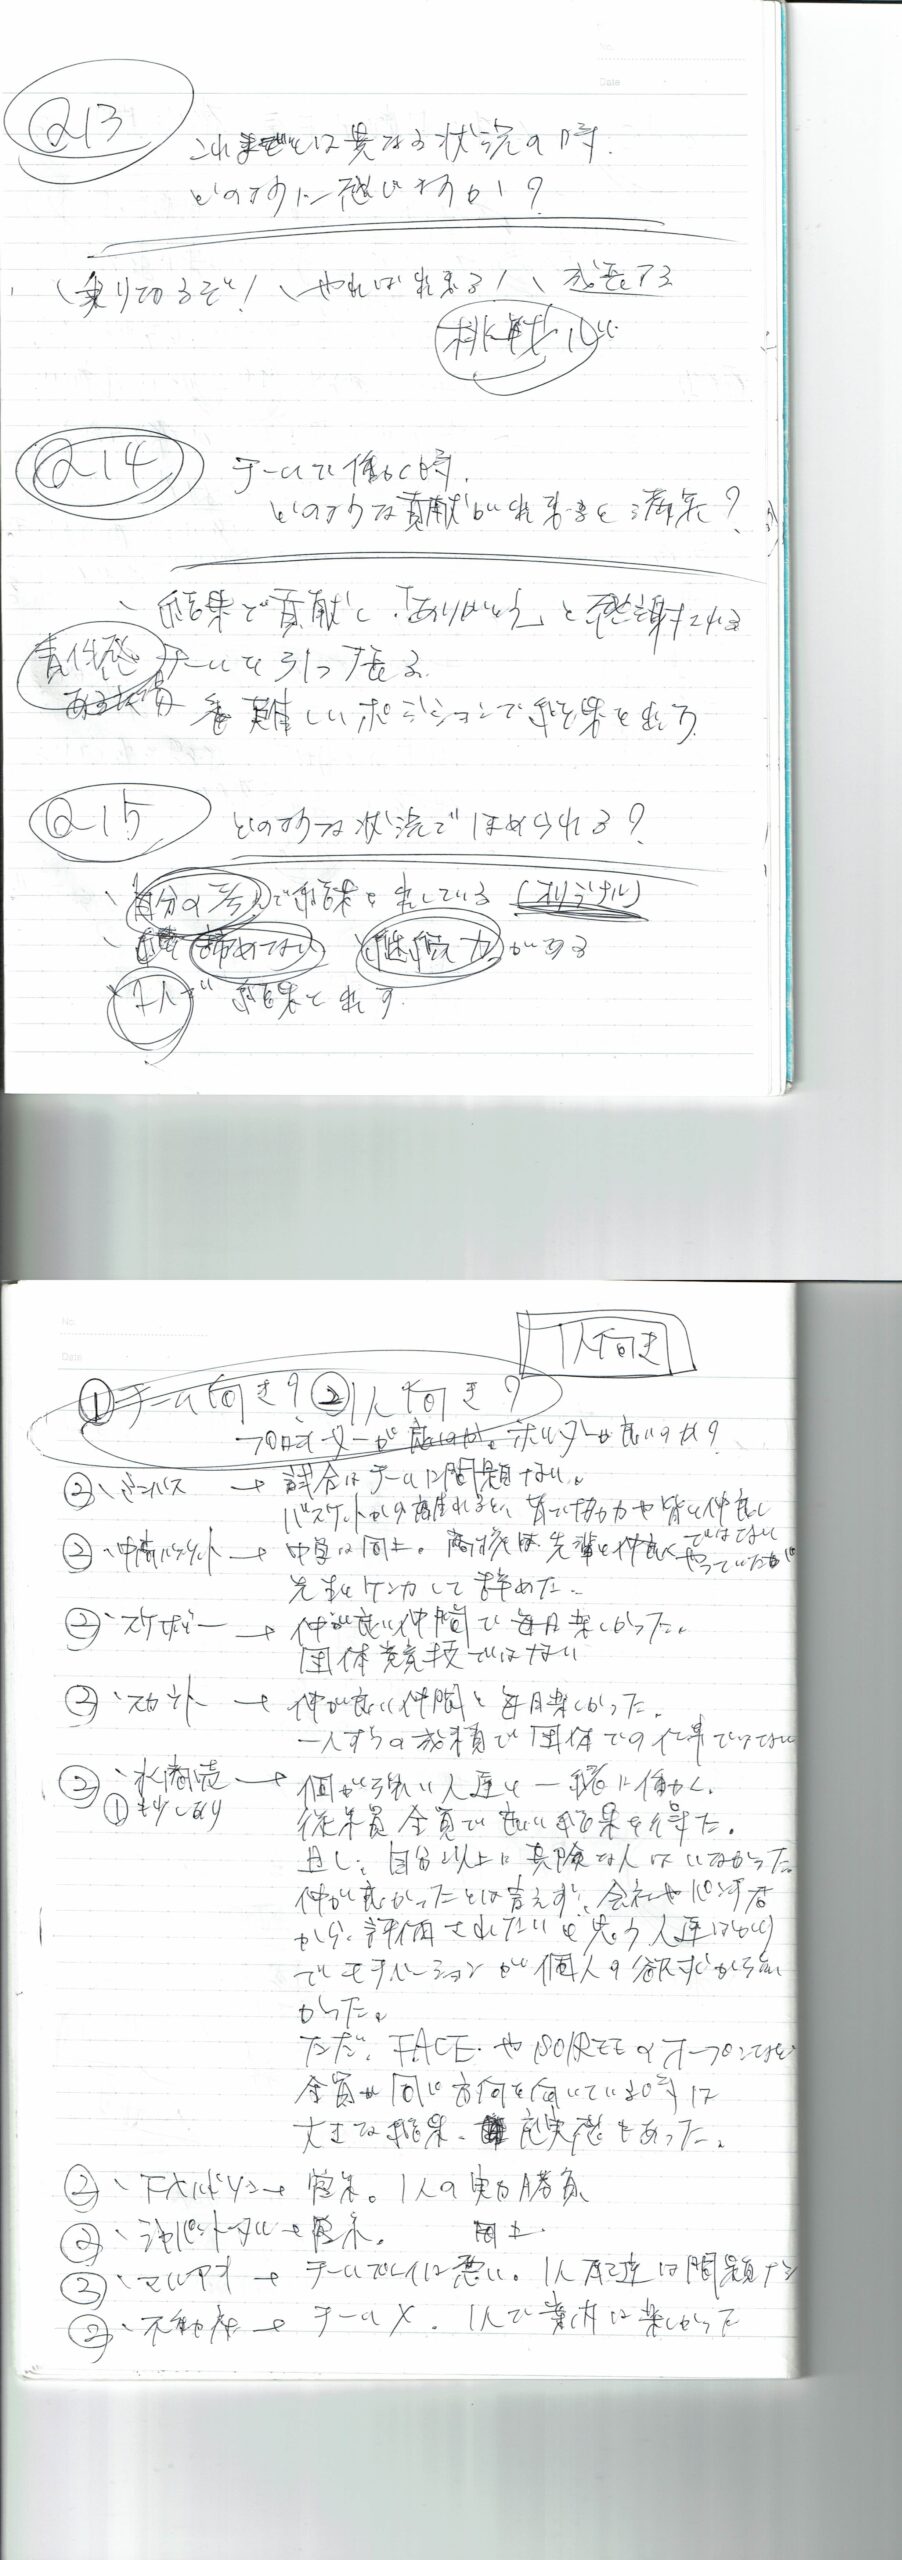 No.
Date
Q13
これまでとは異なる状況の時、
どのように感じますか?
、乗り切るぞ! 、やれば出来る! 、成長する
挑戦心
Q14
チームで働く時、
どのような貢献が出来ると
、結果で貢献し、「ありがとう」と感謝される
責任感
チームを引っ張る
難しいポジションで結果を出す
Q15
どのような状況でほめられる?
、自分の考えで結果を出している(オリジナル)
、諦めない 、継続力がある
、1人で結果を出す
No.
Date
1人向き
①チーム向き? ②1人向き?
②、ミニバス → 試合はチームに問題ない。
バスケットから離れると、皆で協力や皆と仲良し
ではない
②、中高バスケット → 中学は同上。高校は先輩と仲良くやっていたが
先生とケンカして辞めた。
②、スケボー → 仲が良い仲間で毎日楽しかった。
団体競技ではない
②、スカウト → 仲が良い仲間と毎日楽しかった。
一人ずつの成績で団体での仕事ではない
②、水商売 → 個が強い人達と一緒に働く。
①も少しあり
従業員全員で良い結果を得た。
且し、自分以上に真険な人はいなかった。
仲が良かったとは言えず、会社や
から評価されたいと思う人達ばかり
でモチベーションが個人の欲
かった。
ただ、FACE.やSOIREEのオープンなど
全員が同じ方向を向いている時は
大きな結果、充実感もあった。
②、 → 1人の実力勝負。
②、 → 同上.
②、 → チームプレイは悪い。1人 は問題ナシ
②、不動産 → チーム×. 1人で案内は楽しかった